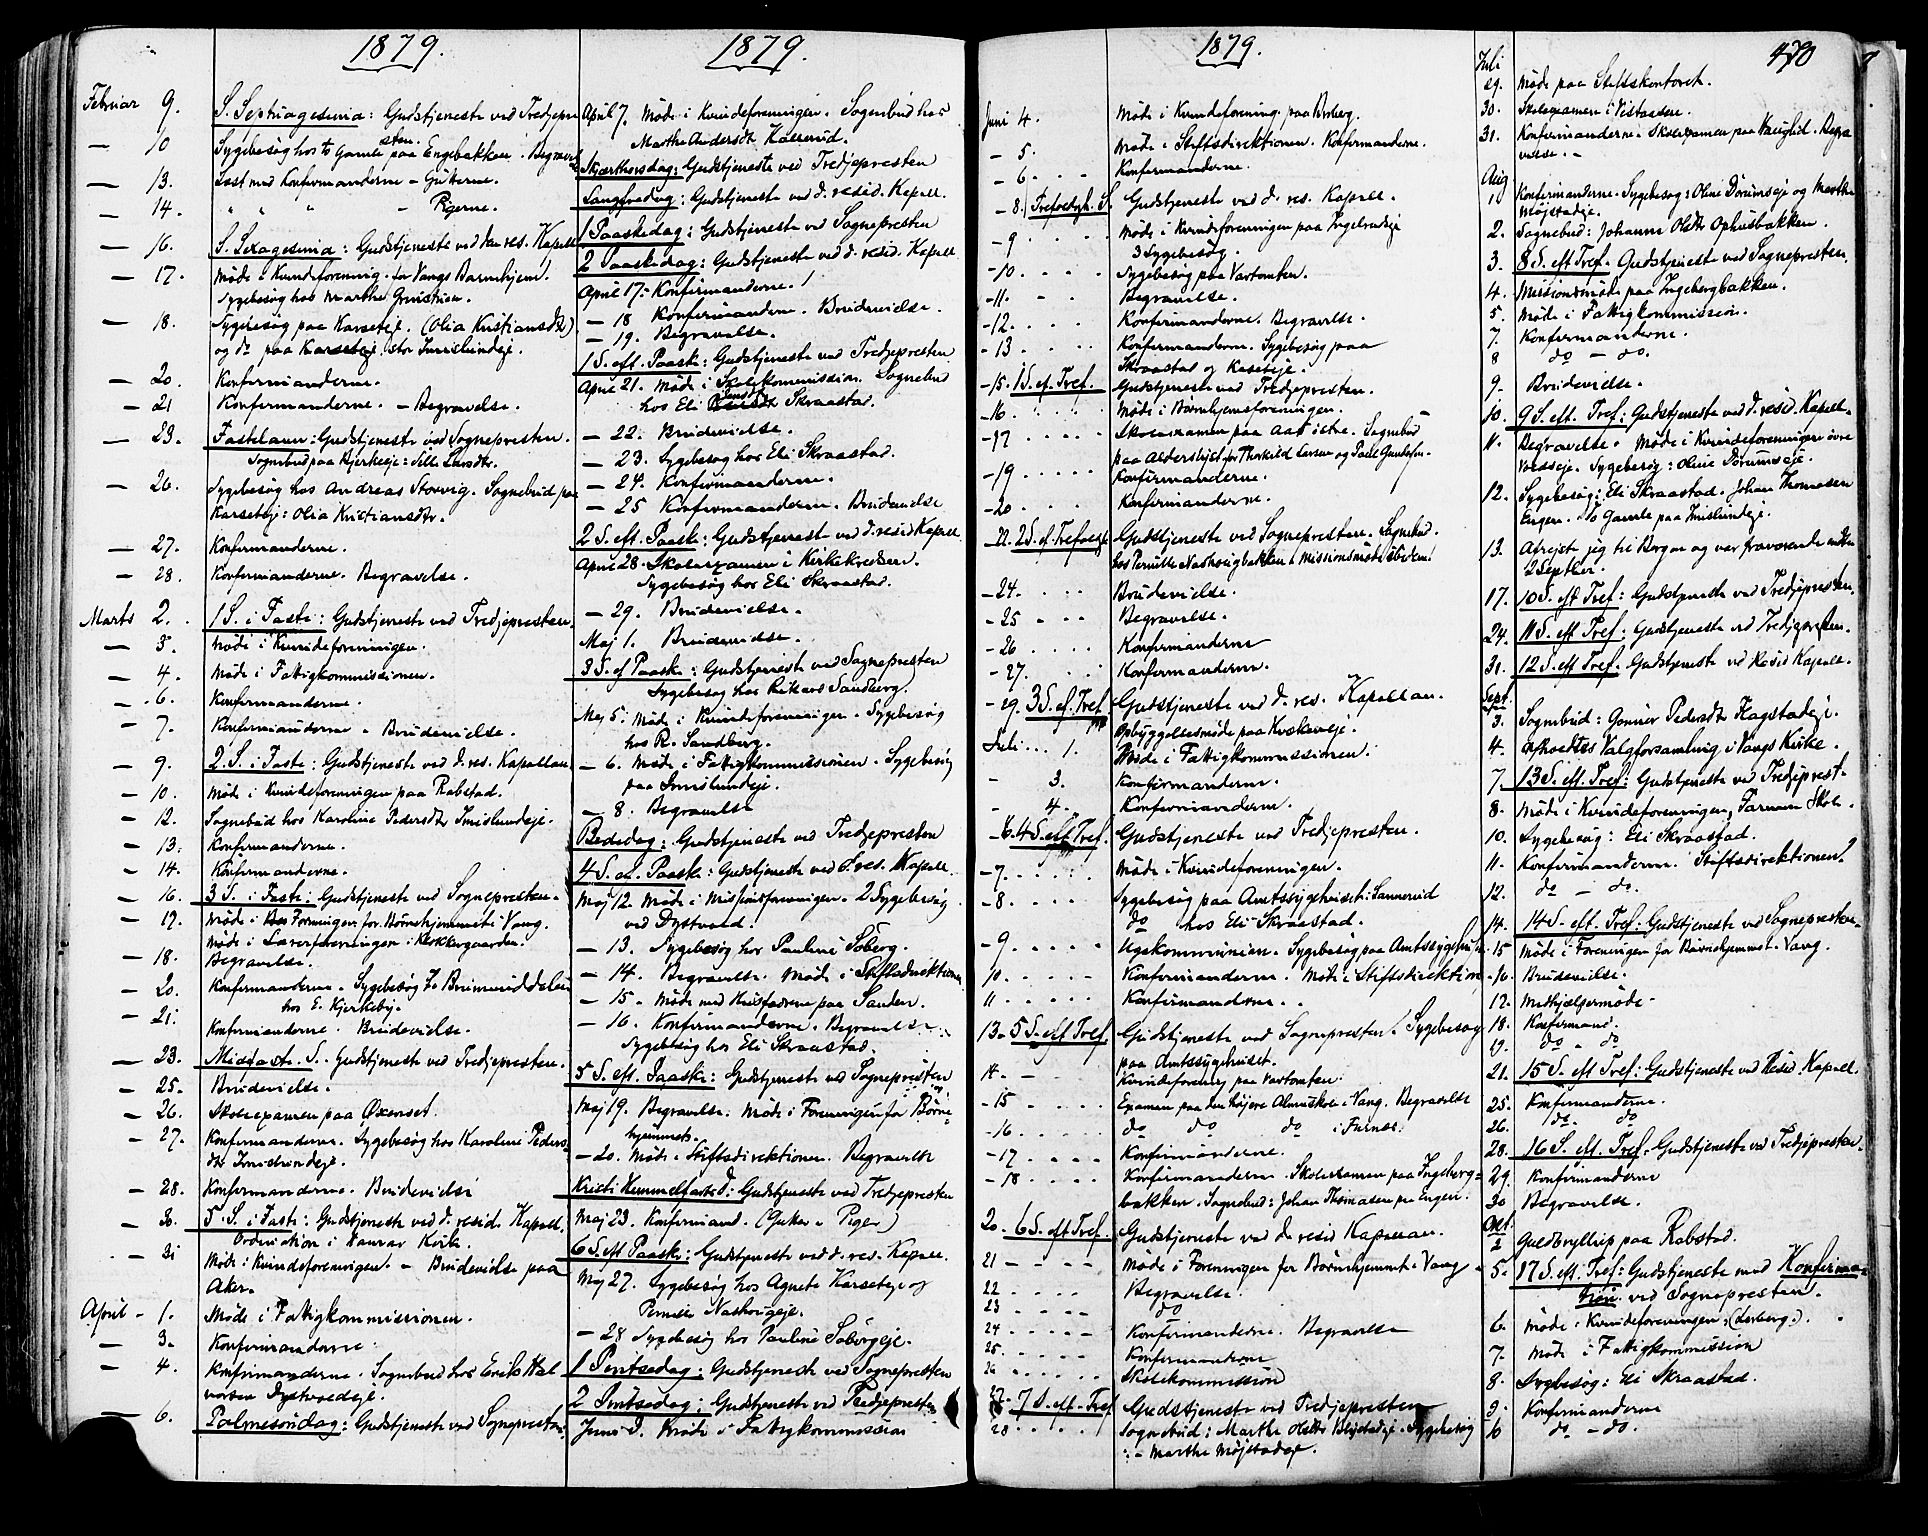 1879.
Februar 9. S. Septuagesima: Gudstjeneste ved Tredjepre
sten.
— 10 Sygebesøg hos to Gamle paa Engebakken. Begravelse
— 13. Læst med Konfirmanderne – Gutterne.
— 14. " " " – Pigerne.
— 16. S. Sexagesima: Gudstjeneste ved den res. Kapell
— 17. Møde i Kvindeforening for Vangs Barnehjem.
Sygebesøg hos Marthe
— 18. Sygebesøg paa Karseteje. (Olia Kristiansdtr)
og do paa Imislundeje.
— 20. Konfirmanderne.
— 21 Konfirmanderne. – Begravelse.
— 23. Fastelavn: Gudstjeneste ved Sognepresten.
Sognebud paa Bjerkeeje:
— 26. Sygebesøg hos Andreas Storvig. Sognebud paa
Karseteje: Olia Kristiansdtr.
— 27. Konfirmanderne.
— 28. Konfirmanderne. Begravelse.
Marts 2. 1 S. i Faste: Gudstjeneste ved Tredjepresten.
— 3. Møde i Kvindeforeningen.
— 4. Møde i Fattigkommissionen.
— 6. Konfirmanderne.
— 7. Konfirmanderne – Brudevielse.
— 9. 2. S. i Faste: Gudstjeneste ved d. res. Kapellan
— 10. Møde i Kvindeforeningen paa Rabstad.
— 12. Sognebud hos Karoline Pedersdtr Imislundeje.
— 13. Konfirmanderne.
— 14. Konfirmanderne.
— 16. 3 S. i Faste: Gudstjeneste ved Sognepresten.
— 17. Møde i Foreningen for Børnehjemmet i Vang.
Møde i Lærerforeningen i Kirkkergaarden.
— 18. Begravelse.
— 20. Konfirmanderne. Sygebesøg
hos E. Kjerkeby.
— 21. Konfirmanderne. Brudevielse.
— 23. Midfaste S. Gudstjeneste ved Tredjepresten.
— 25. Brudevielse.
— 26. Skoleexamen paa Øxenset.
— 27. Konfirmanderne. Sygebesøg hos Karoline Peders-
dtr Imislundeje.
— 28. Konfirmanderne. Brudevielse
— 30. 5. S. i Faste: Gudstjeneste ved d. resid. Kapell.
Ordination i Hamar Kirke.
— 31 Møde i Kvindeforeningen. – Brudevielse paa
Aker.
April – 1. Møde i Fattigkommissionen.
— 3. Konfirmanderne.
— 4. Konfirmanderne. Sognebud hos Erik Hal
vorsen Dystvoldeje.
— 6. Palmesøndag: Gudstjeneste ved Sognepresten.
1879.
April 7. Møde i Kvindeforeningen. Sognebud hos
Marthe Andersdtr Kollerud.
Skjærthorsdag: Gudstjeneste ved Tredjepresten
Langfredag: Gudstjeneste ved d. resid. Kapell.
1 Paaskedag: Gudstjeneste ved Sognepresten
2 Paaskedag: Gudstjeneste ved d. resid. Kapell
April 17: Konfirmanderne.
— 18 Konfirmanderne. Brudevielse.
— 19. Begravelse.
1 S. eft. Paaske: Gudstjeneste ved Tredjepresten
April 21. Møde i Skolekommission. Sognebud
hos Eli Skraastad.
— 22. Brudevielse.
— 23. Sygebesøg hos Eli Skraastad.
— 24. Konfirmanderne.
— 25 Konfirmanderne. Brudevielse
2 S. eft. Paaske: Gudstjeneste ved d. resid Kapell
April 28. Skoleexamen i Kirkekredsen.
Sygebesøg hos Eli Skraastad.
— 29. Brudevielse.
Maj 1. Brudevielse.
3 S. ef Paaske: Gudstjeneste ved Sognepresten
Sygebesøg hos Rikard Sandberg.
Maj 5: Møde i Kvindeforeningen. Sygebesøg
hos R. Sandberg.
— 6. Møde i Fattigkommissionen. Sygebesøg
paa Imislundeje.
— 8. Begravelse
Bededag: Gudstjeneste ved Tredjepresten
4 S. ef. Paaske: Gudstjeneste ved d. res. Kapell.
Maj 12 Møde i Missionsforeningen. 2 Sygebesøg
ved Dystvold.
— 13. Sygebesøg hos Pauline Soberg.
— 14. Begravelse. Møde i Stiftsdirektionen
— 15. Møde med paa Sanden.
— 16. Konfirmanderne. Begravelse.
Sygebesøg hos Eli Skraastad.
5 S. eft. Paaske: Gudstjeneste ved Sognepresten
Maj 19. Begravelse. Møde i Foreningen for Børne-
hjemmet.
— 20. Møde i Stiftsdirektionen. Begravelse
Kristi Himmelfartsd: Gudstjeneste ved Tredjepresten
Maj 23. Konfirmand. (Gutter & Piger)
6 S. eft Paaske: Gudstjeneste ved d. res. Kapell.
Maj 27. Sygebesøg hos Agnete Karseteje og
Pernille Nashougeje.
— 28 Sygebesøg hos Pauline Sobergeje.
1 Pintsedag: Gudstjeneste ved Sognepresten
2 Pintsedag: Gudstjeneste ved Tredjepresten
Juni 3. Møde i Fattigkommission
1879.
Juni 4. Møde i Kvindeforening paa Berberg.
– 5. Møde i Stiftsdirektionen. Konfirmanderne.
– 6. Konfirmanderne.
– 8. Trefoldigh. S. Gudstjeneste ved d. res. Kapell.
– 9 Møde i Kvindeforeningen paa Ingelrudeje
3 Sygebesøg.
– 10. Sygebesøg paa Vartomten.
– 11. Begravelse.
– 12. Konfirmanderne. Begravelse.
– 13 Konfirmanderne. Sygebesøg paa
Skraastad og Karseteje.
– 15. 1 S. ef. Tref. Gudstjeneste ved Tredjepresten.
– 16. Møde i Børnehjemsforeningen.
– 17 Skoleexamen paa Sognebud
paa Alderslyst for Thorkild Larsen og Paul
– 19. Konfirmanderne.
– 20. Konfirmanderne.
– 22. 2 S. ef. Trefoldigh. Gudstjeneste ved Sognepresten. Sognebud
hos Pernille Nashougbakken & Missionsmøde
– 24. Brudevielse.
– 25 Begravelse.
– 26 Konfirmanderne
– 27. Konfirmanderne.
– 29. 3 S. ef. Tref. Gudstjeneste ved d. res. Kapellan.
Opbyggelsesmøde paa
Juli 1. Møde i Fattigkommissionen.
– 3. Konfirmanderne.
– 4. Konfirmanderne.
– 6. 4 S. eft Tref. Gudstjeneste ved Tredjepresten.
– 7. Møde i Kvindeforeningen.
– 8. Sygebesøg paa Amtssygehuset:
do hos Eli Skraastad.
– 9 Ugekommunion. Sygebesøg paa Amtssygehus
10. Konfirmanderne. Møde i Stiftsdirektion
11 Konfirmanderne.
13. 5 S. eft Tref. Gudstjeneste ved Sognepresten. Sygebesøg
paa Amtssygehuset.
14. Kvindeforening paa Vartomten.
– 15 Examen paa den højere Almueskole i Vang. Begravelse
– 16 do do do i Furnes.
– 17 Konfirmanderne.
– 18 Konfirmanderne. Skoleexamen paa Ingeberg-
bakken. Sognebud: Johan Thomasen paa Engen.
20. 6 S. eft Tref. Gudstjeneste ved d. resid Kapellan.
21 Møde i Foreningen for Børnehjemmet i Vang.
22 Begravelse.
23 do
24 Konfirmanderne. Begravelse
25. Konfirmanderne
26 Skolekommission
27. 7 S. eft. Tref Gudstjeneste ved Tredjepresten
28 Sognebud: Marthe Olsdtr Sygebesøg
: – Marthe Møjstadeje.
470
Juli
29. Møde paa Stiftskontoret.
30. Skoleexamen i
31. Konfirmanderne. Skoleexamen paa Begra
velse. –
Aug
1 Konfirmanderne. Sygebesøg: Oline Dørumseje og Marthe
Møjstadeje.
2. Sognebud: Johanne Olsdtr Ophusbakken.
3. 8 S. eft Tref. Gudstjeneste ved Sognepresten.
4. Missionsmøde paa Ingebergbakken.
5. Møde i Fattigkommission.
7. Konfirmanderne.
8 do – do.
9. Brudevielse.
10. 9 S. eft. Tref. Gudstjeneste ved d. resid. Kapell.
11. Begravelse. Møde i Kvindeforeningen øvre
Sygebesøg: Oline Dørumseje.
12. Sygebesøg: Eli Skraastad. Johan Thomasen
Engen. To Gamle paa Imislundeje.
13. Afrejste jeg til Bergen og var fraværende indtil
2 Septbr.
17. 10 S. eft Tref: Gudstjeneste ved Tredjepresten.
24. 11 S. eft Tref: Gudstjeneste ved Tredjepresten.
31. 12 S. eft Tref. Gudstjeneste ved Resid Kapell.
Sept.
3. Sognebud: Gonner Pedersdtr Hagstadeje.
4. Valgforsamling i Vangs Kirke.
7. 13 S. eft. Tref: Gudstjeneste ved Tredjeprest.
8. Møde i Kvindeforeningen, Farmen Skole.
10. Sygebesøg: Eli Skraastad.
11. Konfirmanderne. Stiftsdirektionen.
12. do – do.
14. 14 S. eft. Tref: Gudstjeneste ved Sognepresten
15 Møde i Foreningen for Børnehjemmet i Vang.
16. Brudevielse.
17. Medhjælpermøde.
18. Konfirmand.
19. do – do
21. 15 S. eft Tref: Gudstjeneste ved Resid. Kapell.
25. Konfirmanderne.
26. do. do
28. 16 S. eft. Tref. Gudstjeneste ved Tredjepresten.
29. Konfirmanderne
30 Begravelse.
Okt.
2 Guldbryllup paa Rabstad.
5. 17 S. eft. Tref: Gudstjeneste med Konfirma-
tion ved Sognepresten.
6. Møde i Kvindeforeningen
7. Møde i Fattigkommission
8. Sygebesøg: Eli Skraastad.
9 Konfirmanderne
10 do – do.